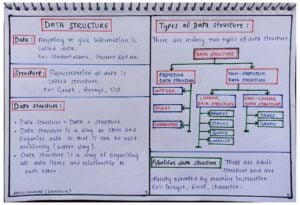 DATA STRUCTURE
Data : Anything to give information is
called data.
Ex: Student Name, Student Roll No.
Structure : Representation of data is
called structure.
Ex: Graph, Arrays, List.
Data Structure :
• Data Structure = Data + Structure.
• Data structure is a way to store and
organize data so that it can be used
efficiently (better way).
• Data structure is a way of organizing
all data items and relationship to
each other.
Types of Data Structure :
There are mainly two types of data structure.
DATA STRUCTURE
PRIMITIVE
DATA STRUCTURE
NON-PRIMITIVE
DATA STRUCTURE
INTEGER
FLOAT
CHARACTER
LINEAR
DATA STRUCTURE
NON-LINEAR
DATA STRUCTURE
ARRAYS
STACKS
QUEUE
TREES
GRAPHS
Primitive data structure : There are basic
structure and are
directly operated by machine instruction.
Ex: Integer, float, character.